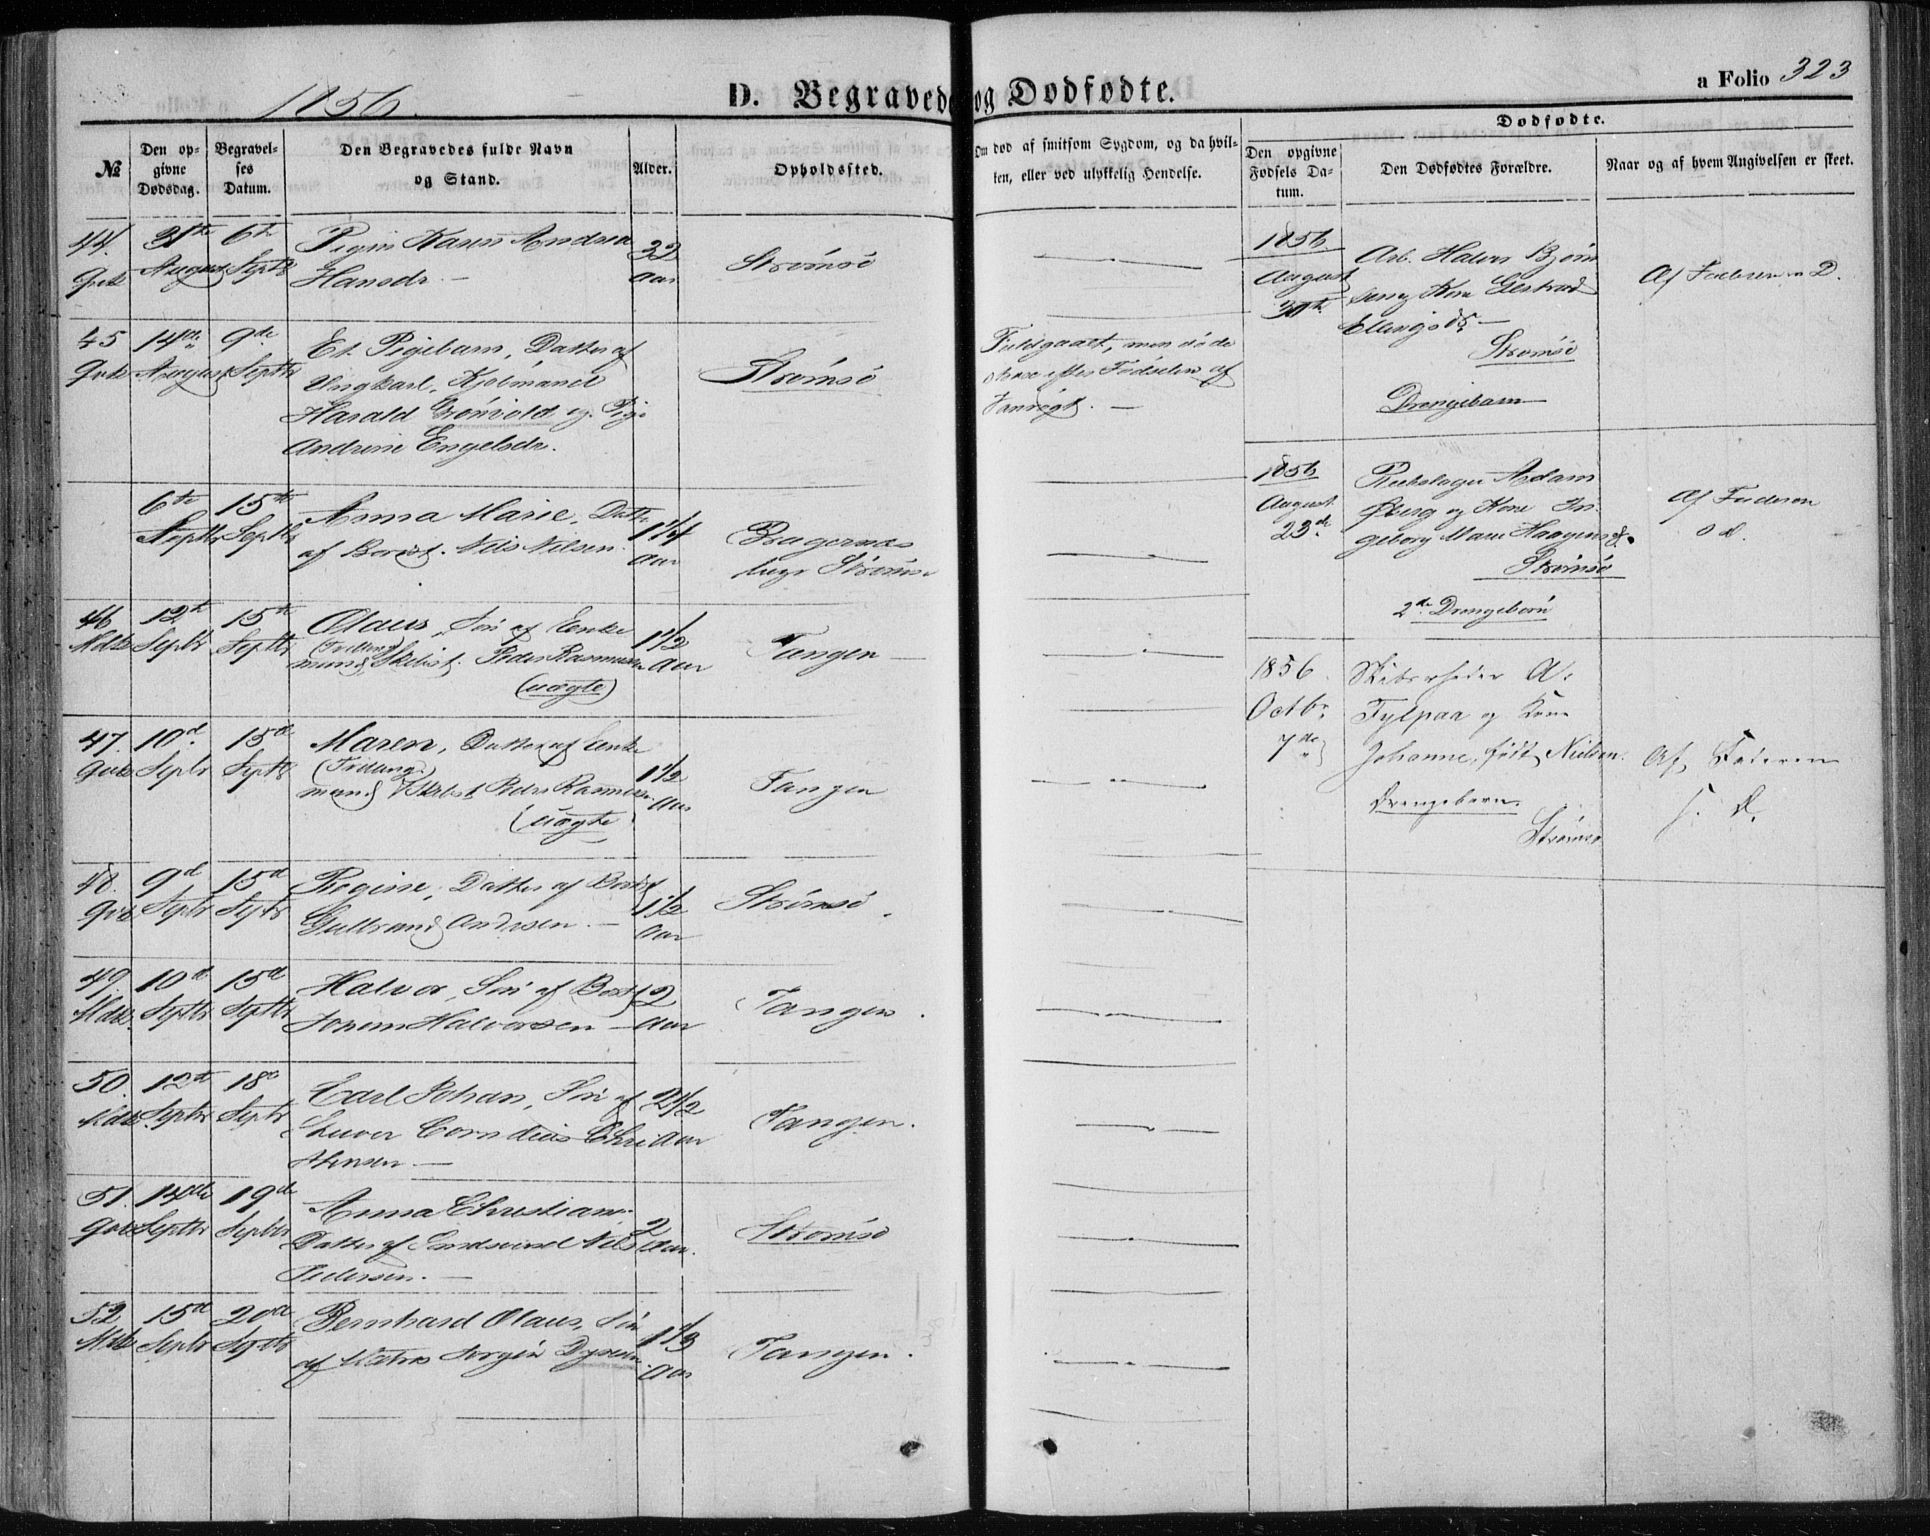 1856.
D. Begravede og Dødfødte.
a Folio 323
№
Den op-
givne
Dødsdag.
Begravel-
ses
Datum.
Den Begravedes fulde Navn
og Stand.
Alder.
Opholdssted.
Om død af smitsom Sygdom, og da hvil-
ken, eller ved ulykkelig Hendelse.
Dødfødte.
Den opgivne
Fødsels Da-
tum.
Den Dødfødtes Forældre.
Naar og af hvem Angivelsen er skeet.
44. 31te 6te Pigen Karen Andrea 32
Qvk August Septbr Hansdr. — Aar Strømsø
45 14de 9de Et Pigebarn, Datter af
Qvk August Septbr Ungkarl, Kjøbmand Strømsø
Harald Grønvold og Pige
Andrine Engelsdr.
Fuldgaaet, men døde
strax efter Fødselen af
6te 15de Anna Marie, Datter 1 1/4
Septbr Septbr af Borist. Nils Nilsen. Aar Bragernæs
Strømsø
46 12te 15de Olaus, Søn af Enke 1 1/2
Mdk Septbr Septbr mand, Skibst. Peder Rasmussen Aar Tangen —
(uægte)
47. 10de 15de Maren, Datter af Enke
Qvk Septbr Septbr mand Skibst. Peder Rasmussen 1 1/2 Aar Tangen
(uægte)
48. 9de 15de Regine, Datter af Borist 1 1/2
Qvk Septbr Septbr Gulbrand Andersen. — Aar Strømsø.
49. 10de 15de Halvor, Søn af Borist 2
Mdk. Septbr Septbr Halvorsen — Aar Tangen.
50. 12te 18de Carl Johan, Søn af 2 1/2
Mdk Septbr Septbr Cornelius Chri Aar Tangen.
stensen. —
51. 14de 19de Anna Christiane, 2
Qvk Septbr Septbr Datter af Nils Aar. Strømsø
Pedersen. —
52 15de 20de Bernhard Olaus, Søn 1 1/3
Mdk Septbr Septbr af Matros Jørgen Aar Tangen.
1856.
August
30te
Arb. Halvor Bjørn
sen og Kone Gertrud
Ellingsdr. —
Strømsø
Drengebarn
Af Faderen s. D.
1856
August
23de
Rebslager Adam
Øberg og Kone In-
geborg Marie Haagensdr.
Strømsø
2de Drengebørn
Af Faderen
s d.
1856.
Octbr.
7de
Skibsrheder A.
og Kone
Johanne, født Nielsen.
Drengebarn.
Strømsø
Af Faderen
s. D.